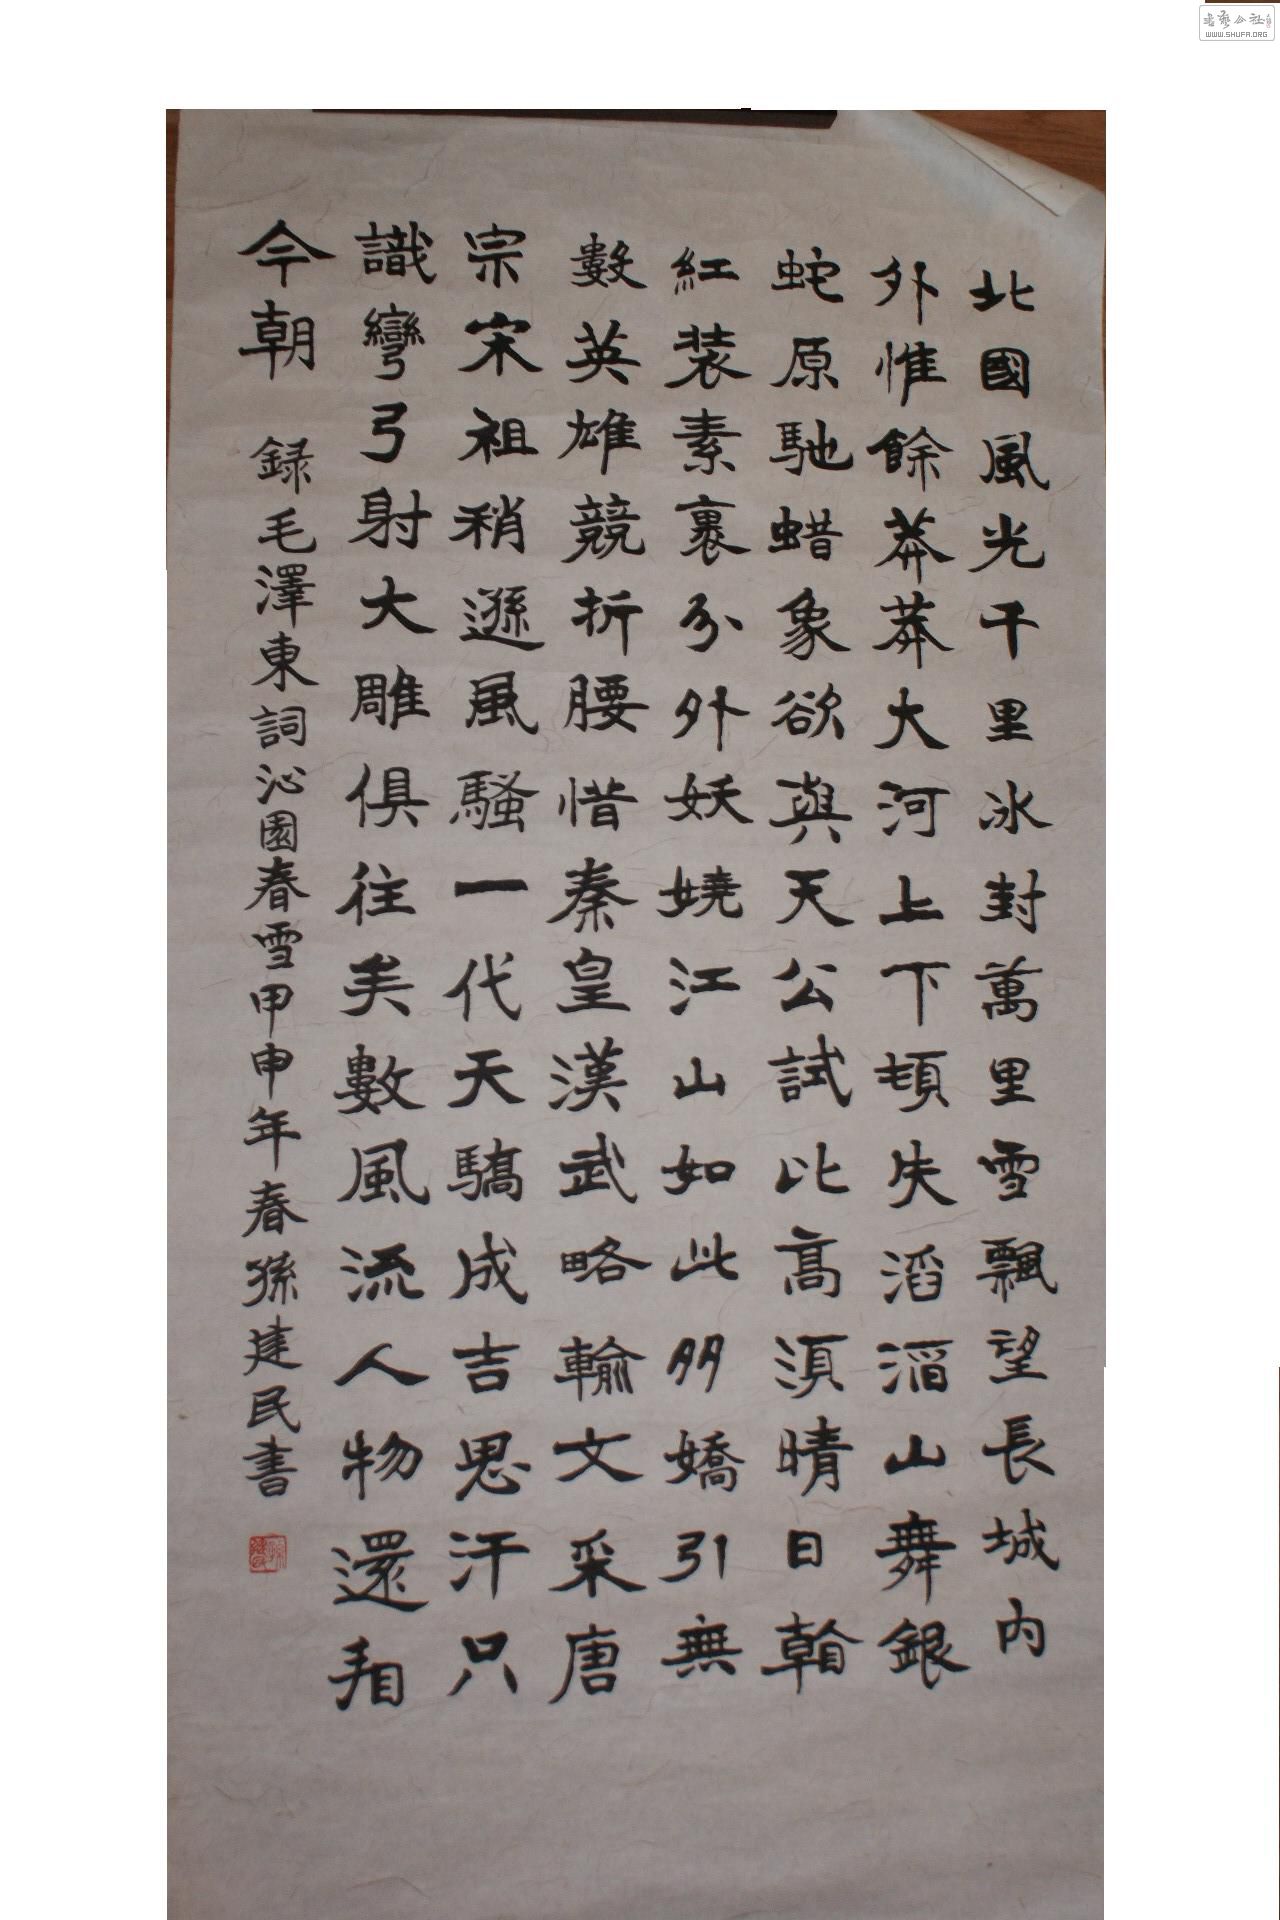 北國風光千里冰封萬里雪飄望長城内
外惟餘莽莽大河上下頓失滔滔山舞銀
蛇原馳蜡象欲與天公試比高須晴日看
紅装素裹分外妖嬈江山如此多嬌引無
數英雄競折腰惜秦皇漢武略輸文采唐
宗宋祖稍遜風騷一代天驕成吉思汗只
識彎弓射大雕俱往矣數風流人物還看
今朝 録毛澤東詞沁園春雪甲申年春孫建民書
書藝公社
WWW.SHUFA.ORG